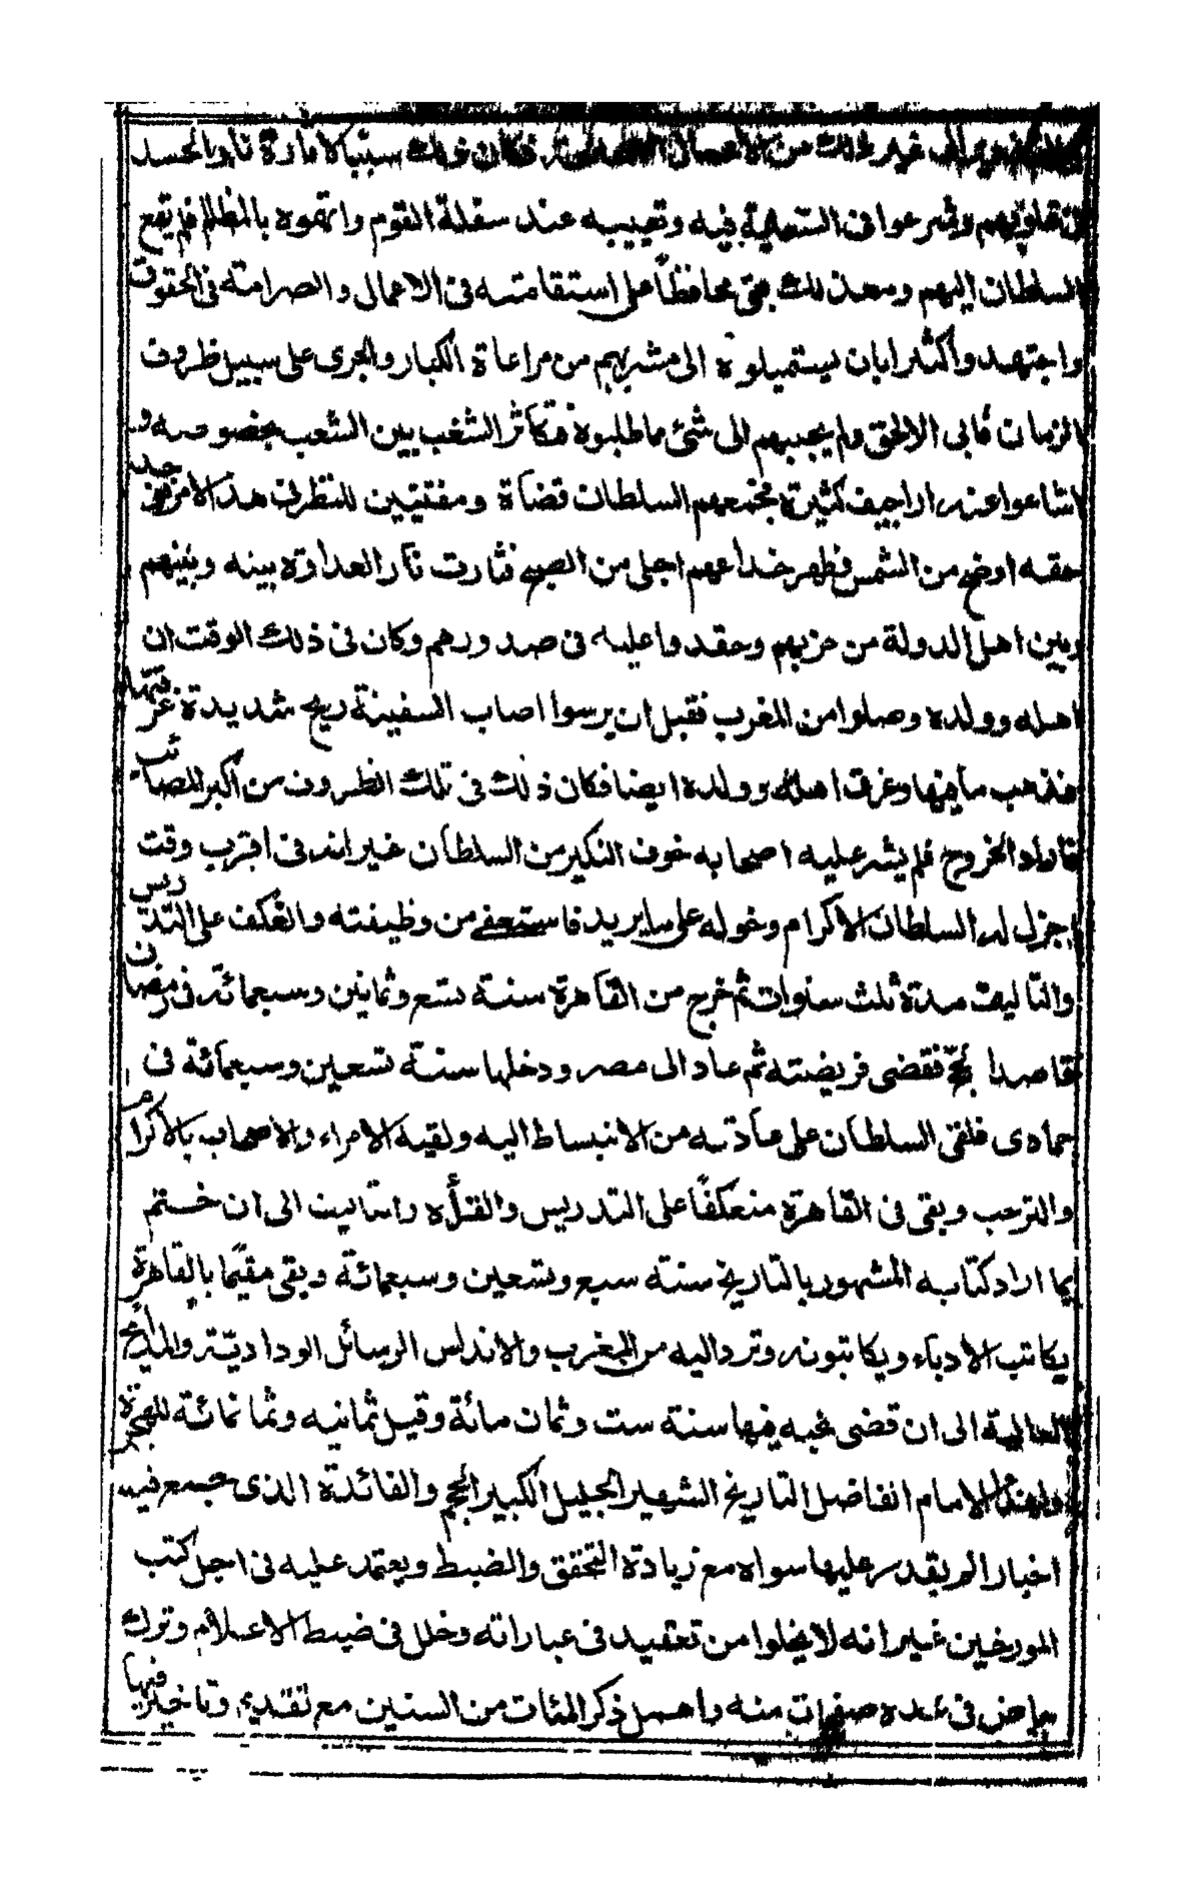 الى غير ذلك من الاعمال فكان ذلك سببا لاثارة نار الحسد
فى قلوبهم وشرعوا فى السعاية فيه وتعييبه عند سفلة القوم واتهموه بالمظالم فلم يقع
السلطان اليهم ومع ذلك بقى محافظاً على استقامته فى الاعمال والصرامة فى الحقوق
واجتهد واكثر ايان يستميلوه الى مشربهم من مراعاة الكبار والجرى على سبيل ظروف
الزمان فأبى الا الحق ولم يجبهم الى شئ ماطلبوه فتكاثر الشغب بين الشعب بخصوصه و
اشاعوا عنه اراجيف كثيرة فجمعهم السلطان قضاة ومفتيين للنظر فى هذا الامر فوجد
حقه اوضح من الشمس فظهر خداعهم اجلى من الصبح فثارت نار العداوة بينه وبينهم
وبين اهل الدولة من حزبهم وحقدوا عليه فى صدورهم وكان فى ذلك الوقت ان
اهله وولده وصلوا من المغرب فقبل ان يرسوا اصاب السفينة ريح شديدة غرقتها
فذهب ما فيها وغرق اهله وولده ايضا فكان ذلك فى تلك الظروف من اكبر المصائب
فاراد الخروج فلم يشر عليه اصحابه خوف النكير من السلطان غير انه فى اقرب وقت
اجزل له السلطان الاكرام وخوله على ما يريد فاستعفى من وظيفته والعكف على التدريس
والتاليف مدة ثلث سنوات ثم خرج من القاهرة سنة تسع وثمانين وسبعمائة فى رمضان
قاصدا بحج فقضى فريضته ثم عاد الى مصر ودخلها سنة تسعين وسبعمائة فى
جمادى فلقى السلطان على عادته من الانبساط اليه ولقيه الامراء والاصحاب بالاكرام
والترحب وبقى فى القاهرة منعكفاً على التدريس والقرأه والتاليف الى ان ختم
بما اراد كتابه المشهور بالتاريخ سنة سبع وتسعين وسبعمائة وبقى مقيما بالقاهرة
يكاتب الادباء ويكاتبونه وترد اليه من المغرب والاندلس الرسائل الودادية والمدايح
العالية الى ان قضى نحبه فيها سنة ست وثمان مائة وقيل ثمانيه وثمانمائة للهجرة
ولهذا الامام الفاضل التاريخ الشهير الجليل الكبير الحجم والفائدة الذى جمع فيه
اخبارا لم يقدر عليها سواه مع زيادة التحقق والضبط ويعتمد عليه فى اجل كتب
المورخين غير انه لا يخلوا من تعقيد فى عباراته وخلل فى ضبط الاعلام وترك
بياض فى عده صفحات منه واهمل ذكر المئات من السنين مع تقديم وتاخير فيها